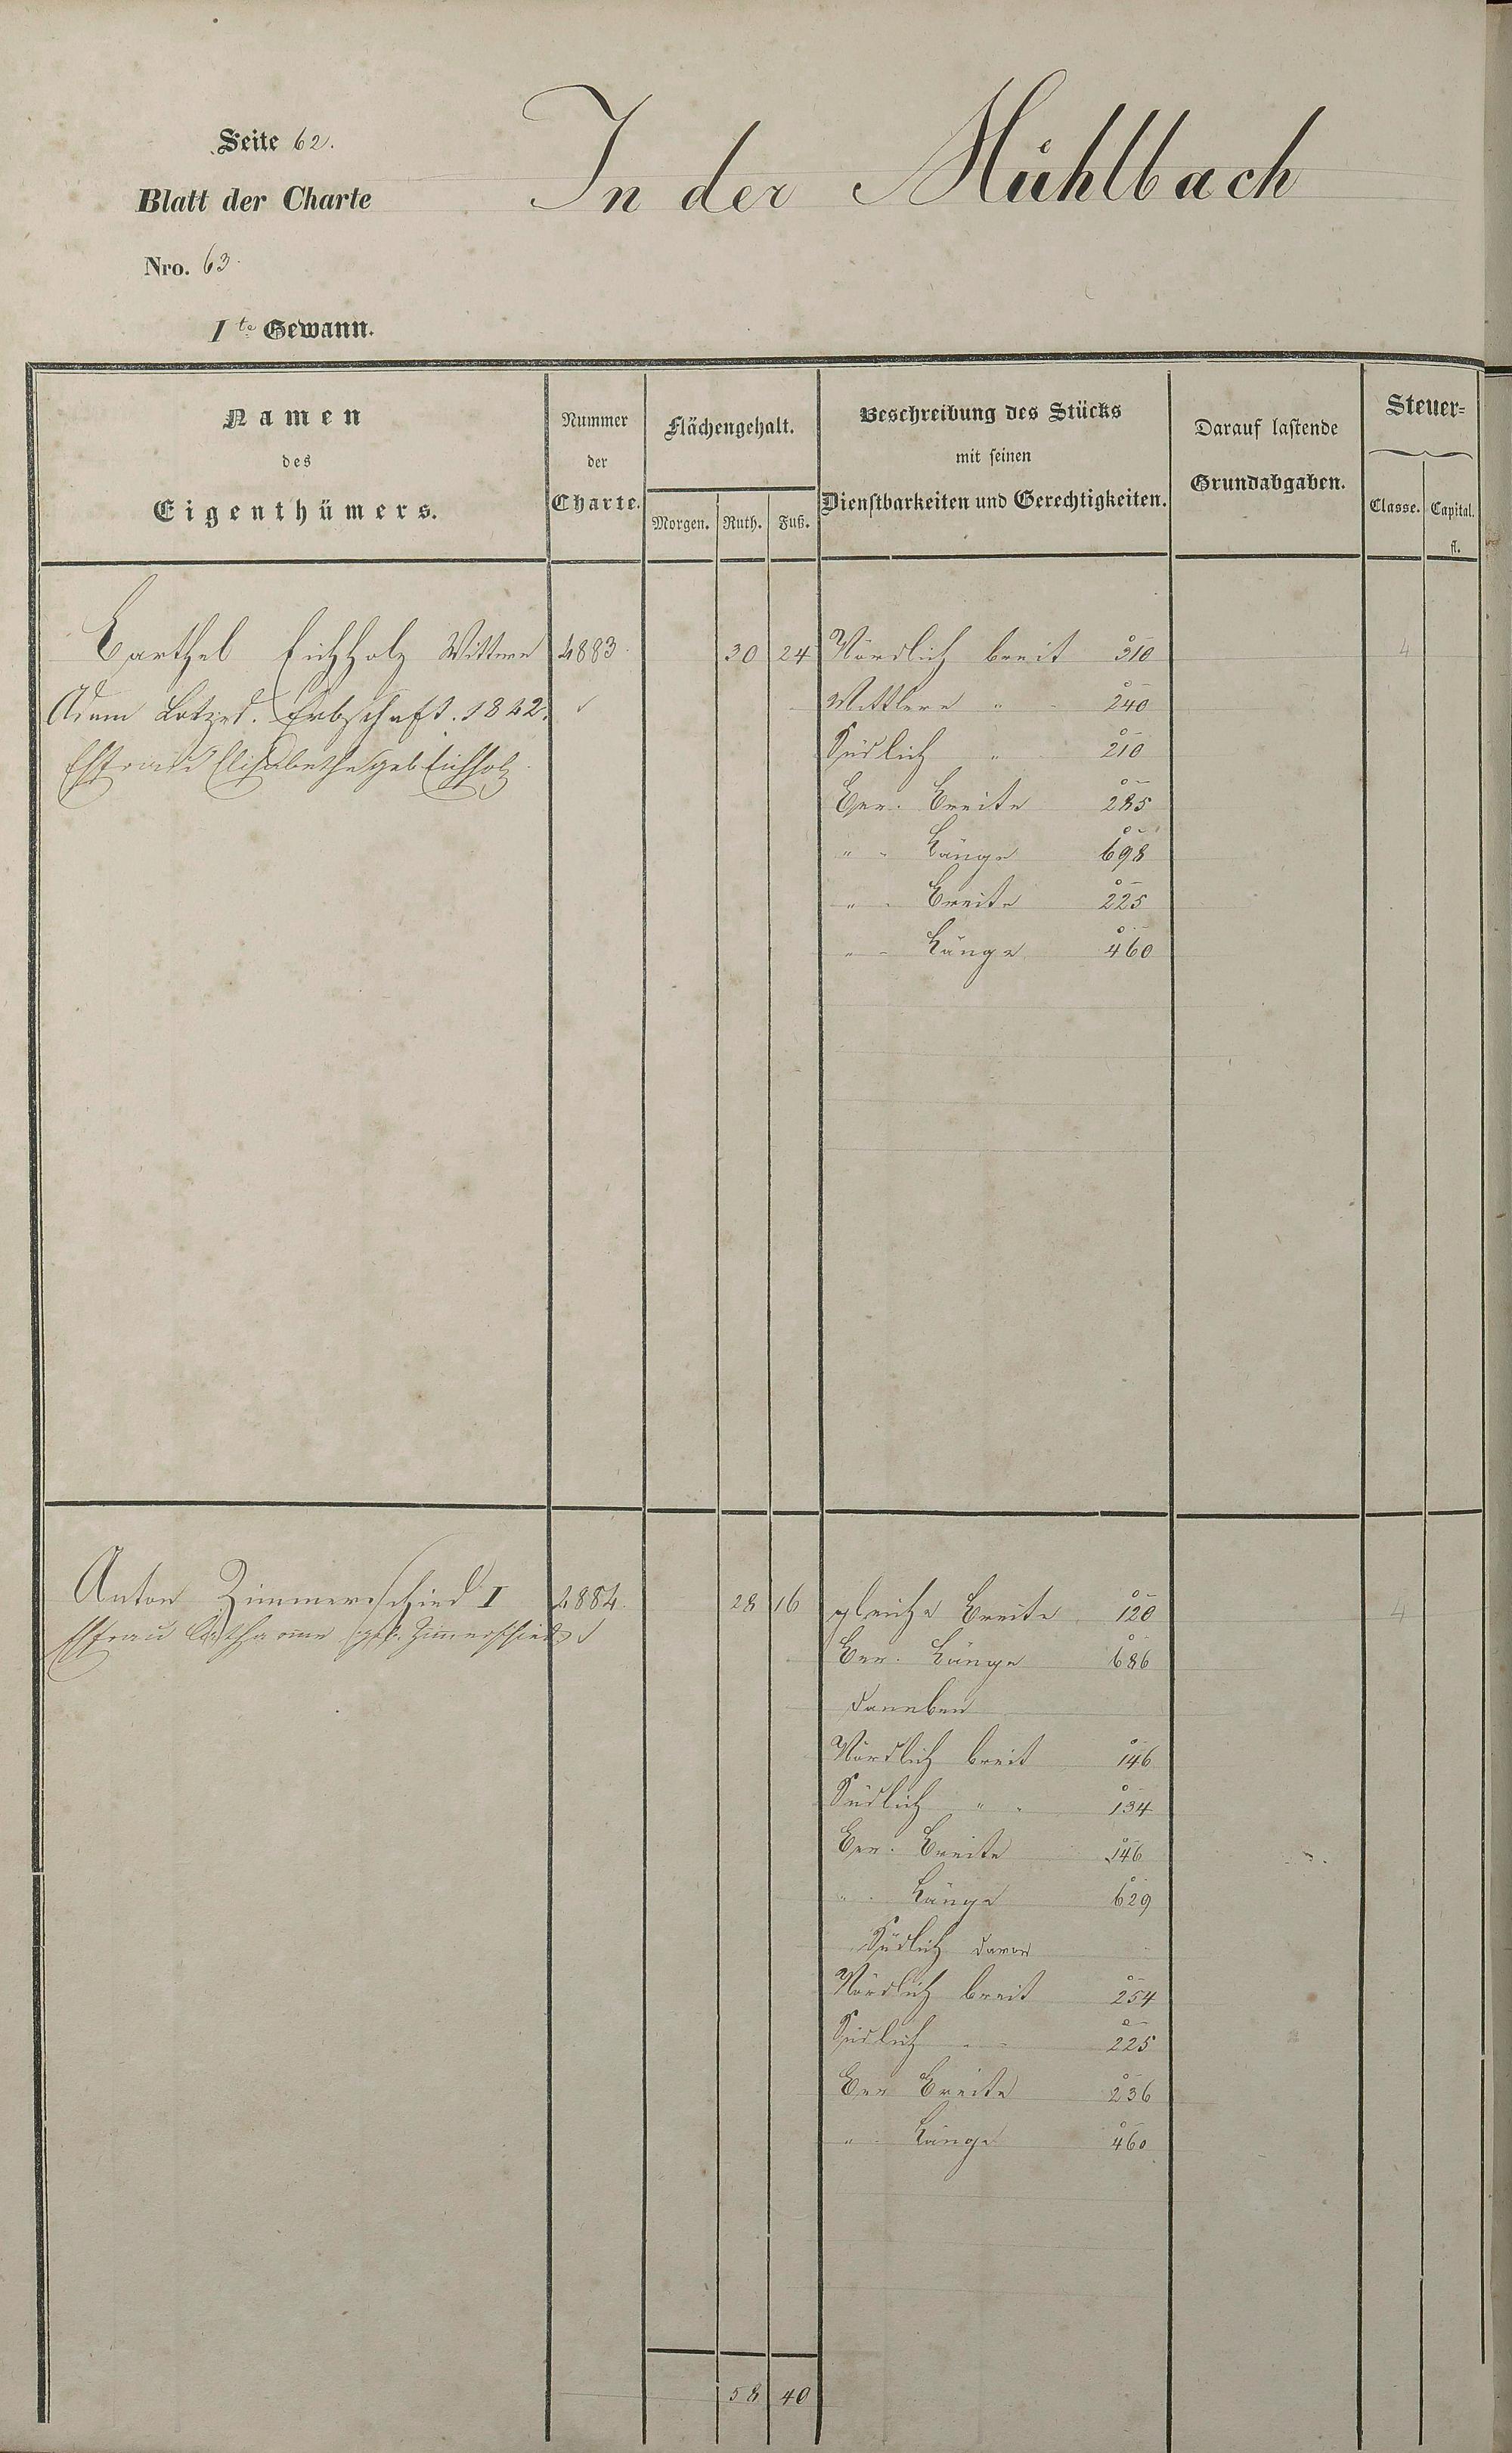 Seite 62.
In der Mühlbach
Blatt der Charte
Nro. 63.
I te Gewann.
Namen
des
Eigenthümers.
Nummer
der
Charte.
Flächengehalt.
Morgen. Ruth. Fuß.
Beschreibung des Stücks
mit seinen
Dienstbarkeiten und Gerechtigkeiten.
Darauf lastende
Grundabgaben.
Steuer=
Classe. Capital.
fl.
Barthel Eichholz Wittwe 4883. 30 24 Nördlich breit 310 4
Adam Lotzed. Erbschaft. 1842. Mittlere " 240
Ehfrau Elisabethe geb Eichholz Südlich " 210
Ber. Breite 285
" " Länge 698
" " Breite 225
" " Länge 460
Anton Zimmerschied I 4884. 28 16 gleiche Breite 120 4
Ehfrau Catha geb. Zimmerschied Ber. Länge 686
daneben
Nördlich breit 146
Südlich " " 134
Ber. Breite 146
" Länge 629
Südlich davon
Nördlich breit 254
Südlich " " 225
Ber Breite 236
" Länge 460
58 40